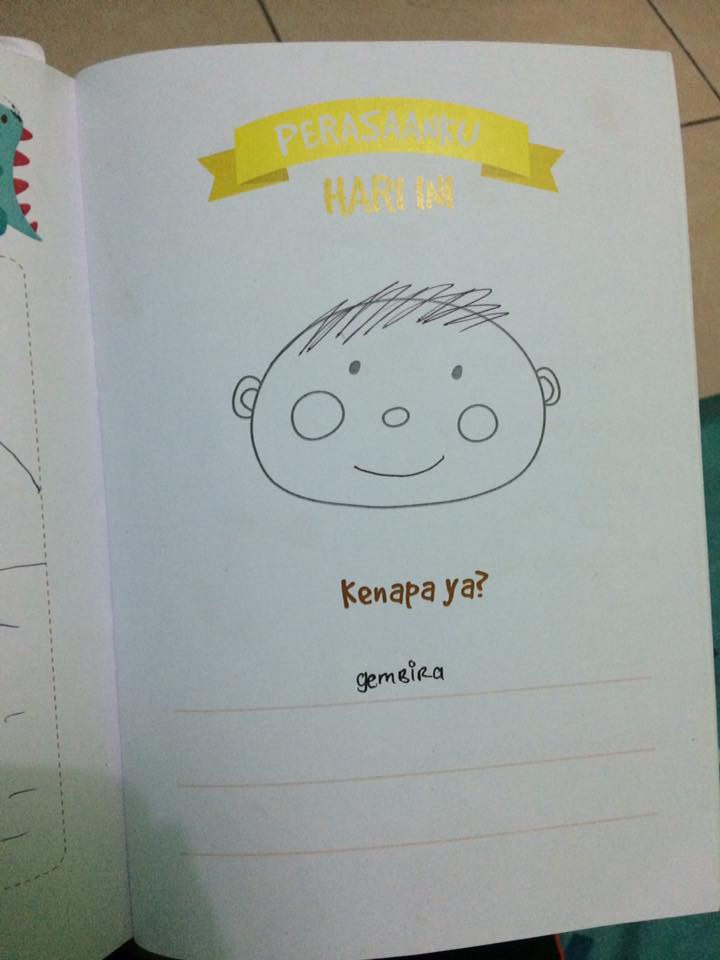 PERASAANKU
HARI INI
Kenapa ya?
gemBiRa